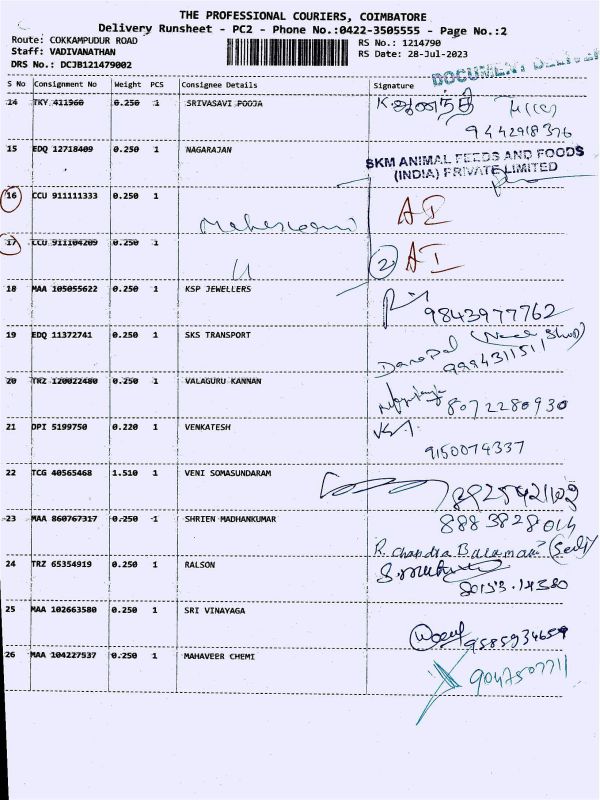 THE PROFESSIONAL COURIERS, COIMBATORE
Delivery Runsheet - PC2 - Phone No.:0422-3505555 - Page No.:2
Route: COKKAMPUDUR ROAD RS No.: 1214790
Staff: VADIVANATHAN RS Date: 28-Jul-2023
DRS No.: DCJB121479002
DOCUMENT
S No Consignment No Weight PCS Consignee Details Signature
14 TKY 411960 0.250 1 SRIVASAVI POOJA
9442918376
15 EDQ 12718409 0.250 1 NAGARAJAN
SKM ANIMAL FEEDS AND FOODS
(INDIA) PRIVATE LIMITED
16 CCU 911111333 0.250 1 AI
17 CCU 911104209 0.250 1 2 AI
18 MAA 105055622 0.250 1 KSP JEWELLERS
9843977762
19 EDQ 11372741 0.250 1 SKS TRANSPORT
9994311511
20 TRZ 120022480 0.250 1 VALAGURU KANNAN
8072280930
21 DPI 5199750 0.220 1 VENKATESH
9150074337
22 TCG 40565468 1.510 1 VENI SOMASUNDARAM
23 MAA 860767317 0.250 1 SHRIEN MADHANKUMAR
8883828014
R. Chandra
24 TRZ 65354919 0.250 1 RALSON
25 MAA 102663580 0.250 1 SRI VINAYAGA
9585934659
26 MAA 104227537 0.250 1 MAHAVEER CHEMI
9047507711